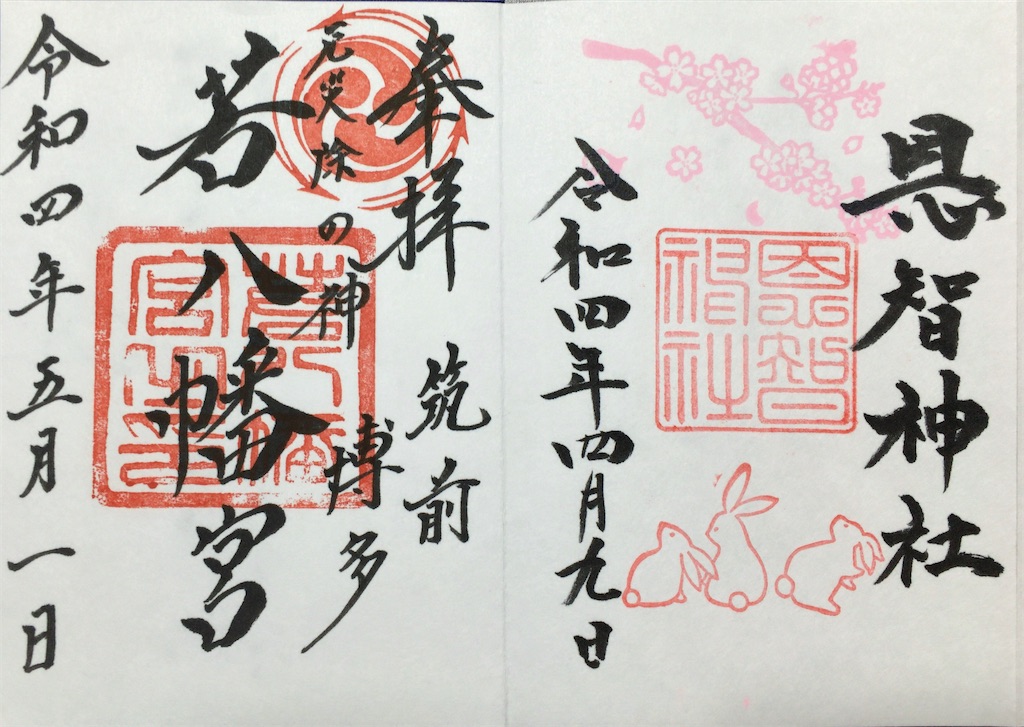 恩智神社
恩智神社
令和四年四月九日
奉拝 筑前
厄災除の神 博多
若八幡宮
令和四年五月一日